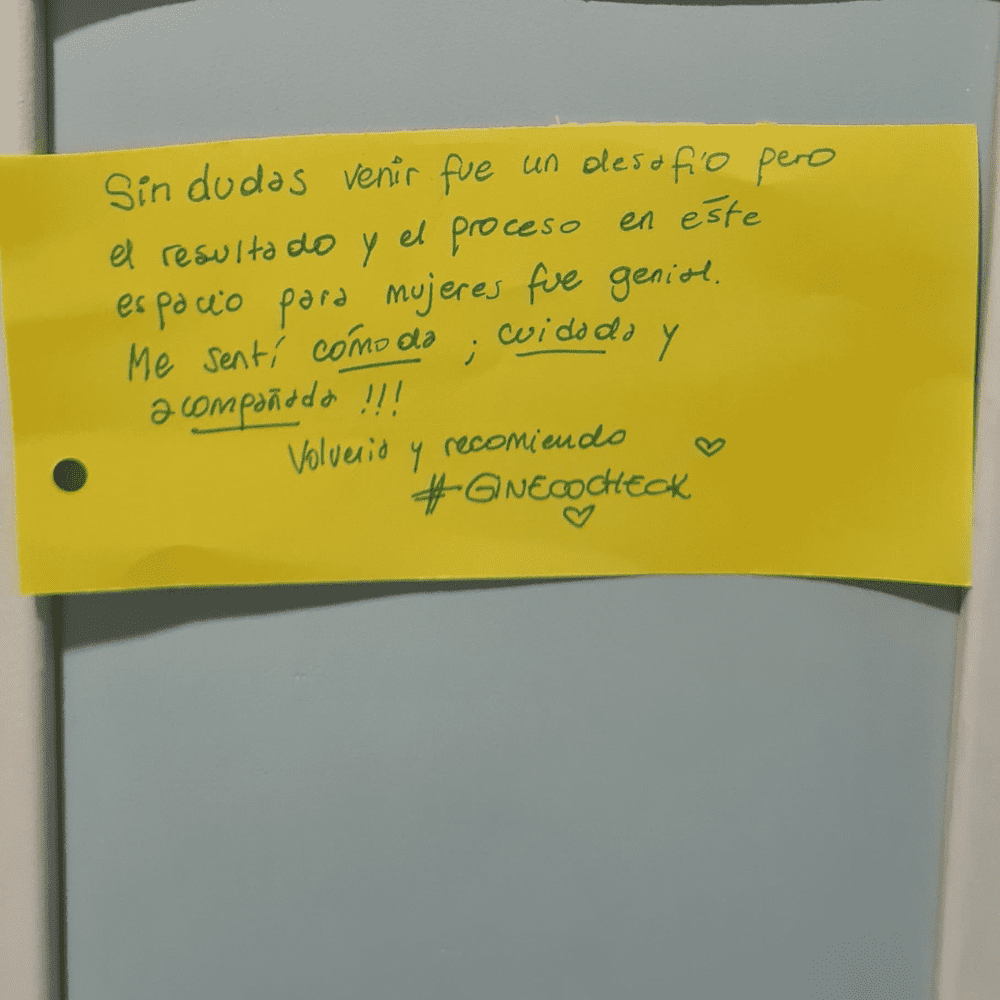 Sin dudas venir fue un desafío pero
el resultado y el proceso en este
espacio para mujeres fue genial.
Me sentí cómoda ; cuidada y
acompañada !!!
Volveria y recomiendo ♡
#GINECOCHECK
♡